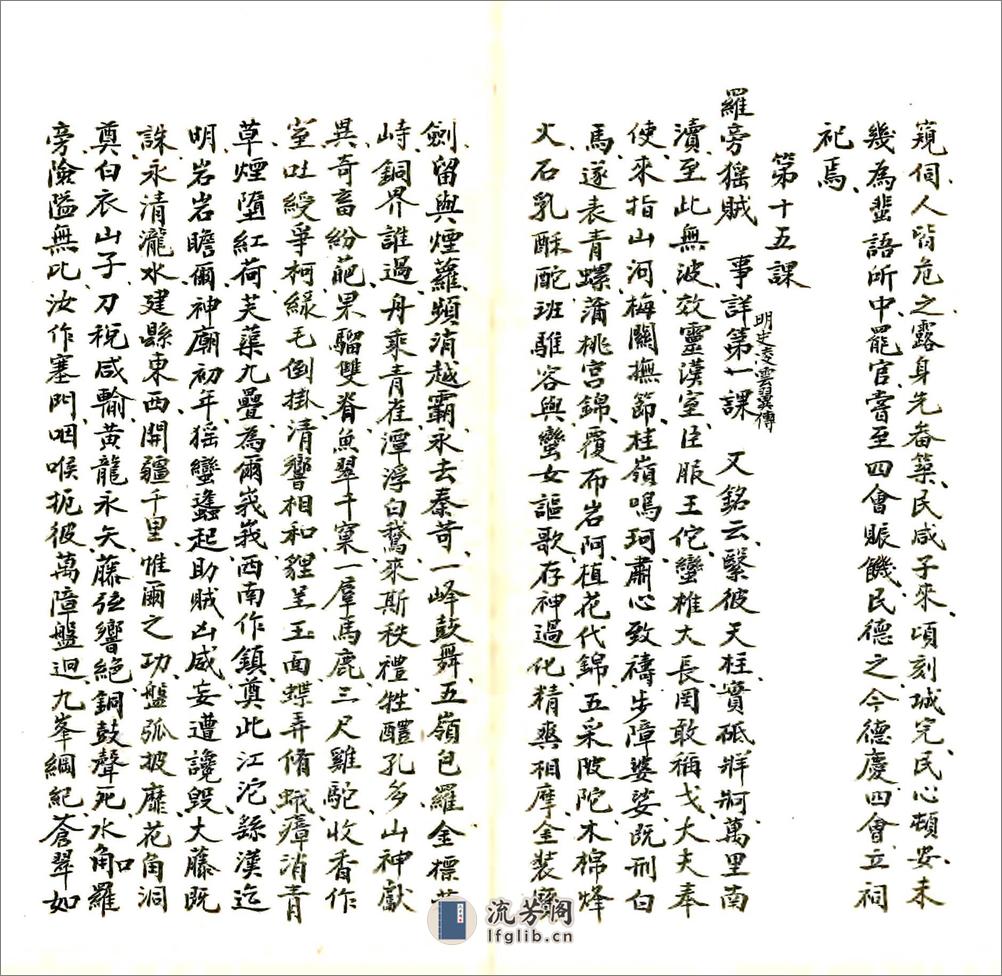 窺伺人皆危之露身先畚築民咸子來頃刻城完民心頓安未
幾為蜚語所中罷官嘗至四會賑饑民德之今德慶四會立祠
祀焉
第十五課
羅旁猺賊 事詳第一課 明史淩雲翼傳 又銘云繄彼天柱實砥牂牁萬里南
瀆至此無波效靈漢室臣服王佗蠻椎大長罔敢稱戈大夫奉
使來指山河梅關撫節桂嶺鳴珂肅心致禱步障婆娑既刑白
馬遂表青螺蒲桃宮錦覆布岩阿植花代錦五采陂陀木棉烽
火石乳酥酡班騅容與蠻女謳歌存神過化精爽相摩金裝
劍留與煙蘿頻消越霸永去秦苛一峰鼓舞五嶺包羅金標
峙銅界誰過舟乘青雀潭浮白鵞來斯秩禮牲醴孔多山神獻
異奇畜紛葩果騮雙脊魚翠千窠一羣馬鹿三尺雞駝收香作
室吐綬爭柯綠毛倒掛清響相和貍呈玉面蝶弄脩蛾瘴消青
草煙墮紅荷芙蕖九疊為爾峩峩西南作鎮奠此江沱繇漢迄
明岩岩瞻爾神廟初年猺蠻蠭起助賊凶威妄遭讒毀大藤既
誅永清瀧水建縣東西開疆千里惟爾之功盤弧披靡花角洞
奠白衣山子刀稅咸輸黃龍永矢藤弦響絕銅鼓聲死水口角羅
旁險隘無比汝作塞門咽喉扼彼萬障盤迴九峯綱紀蒼翠如
流芳阁
lfglib.cn